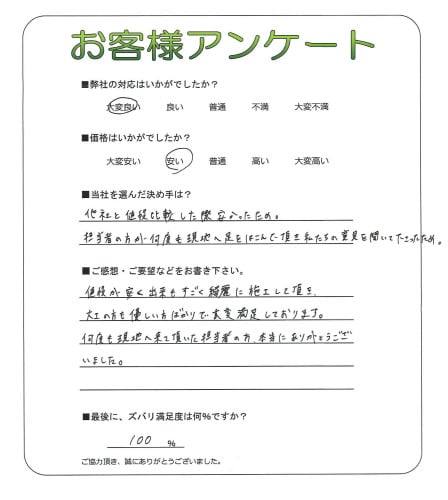 お客様アンケート
■弊社の対応はいかがでしたか？
大変良い 良い 普通 不満 大変不満
■価格はいかがでしたか？
大変安い 安い 普通 高い 大変高い
■当社を選んだ決め手は？
他社と値段比較した際安かったため。
担当者の方が何度も現地へ足をはこんで頂き私たちの意見を聞いて下さったため。
■ご感想・ご要望などをお書き下さい。
値段が安く出来もすごく綺麗に施工して頂き、
大工の方も優しい方ばかりで大変満足しております。
何度も現地へ来て頂いた担当者の方、本当にありがとうござ
いました。
■最後に、ズバリ満足度は何％ですか？
100 ％
ご協力頂き、誠にありがとうございました。